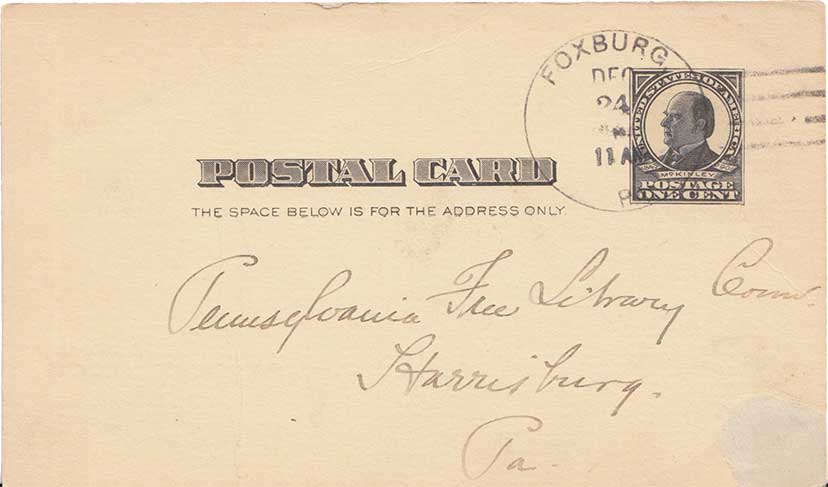 FOXBURG
DEC
24
11 AM
UNITED STATES OF AMERICA
McKINLEY
POSTAGE
ONE CENT
POSTAL CARD
THE SPACE BELOW IS FOR THE ADDRESS ONLY.
Pennsylvania Free Library Com.
Harrisburg.
Pa.